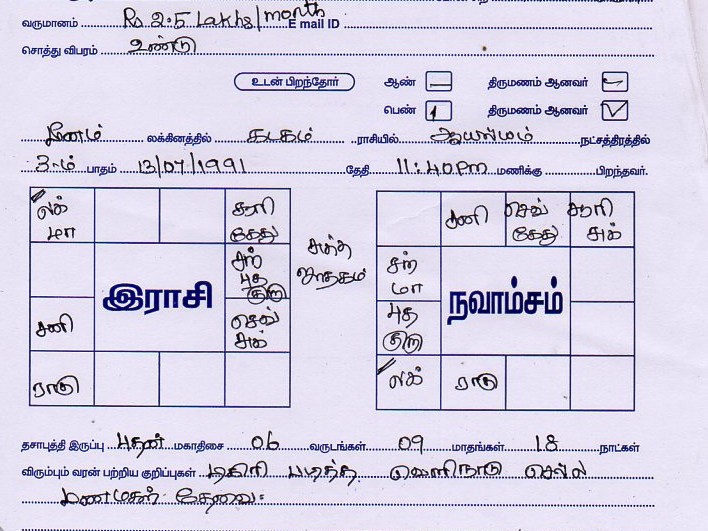 வருமானம் Rs 2.5 Lakhs/month E mail ID
சொத்து விபரம் உண்டு
உடன் பிறந்தோர் ஆண் — திருமணம் ஆனவர் —
பெண் 1 திருமணம் ஆனவர் ✓
மீனம் லக்கினத்தில் கடகம் ராசியில் ஆயில்யம் நட்சத்திரத்தில்
3-ம் பாதம் 13/07/1991 தேதி 11:40pm மணிக்கு பிறந்தவர்.
லக் மா
சூரி கேது
சனி
செவ் கேது
சூரி சுக்
சுத்த ஜாதகம்
இராசி
சந் புத குரு
நவாம்சம்
சந் மா
சனி
செவ் சுக்
புத குரு
ராகு
லக்
ராகு
தசாபுத்தி இருப்பு புதன் மகாதிசை 06 வருடங்கள் 09 மாதங்கள் 18 நாட்கள்
விரும்பும் வரன் பற்றிய குறிப்புகள் டிகிரி படித்த வெளிநாடு செல்ல
மணமகன் தேவை.